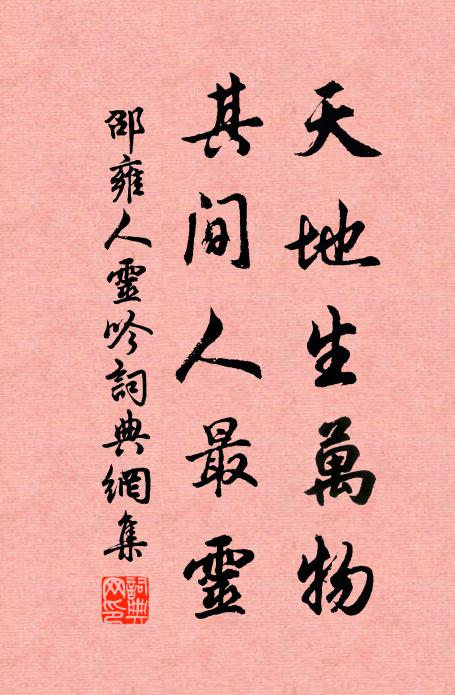 天地生萬物
其間人最靈
邵雍人靈吟詞典網集
詞典
网印